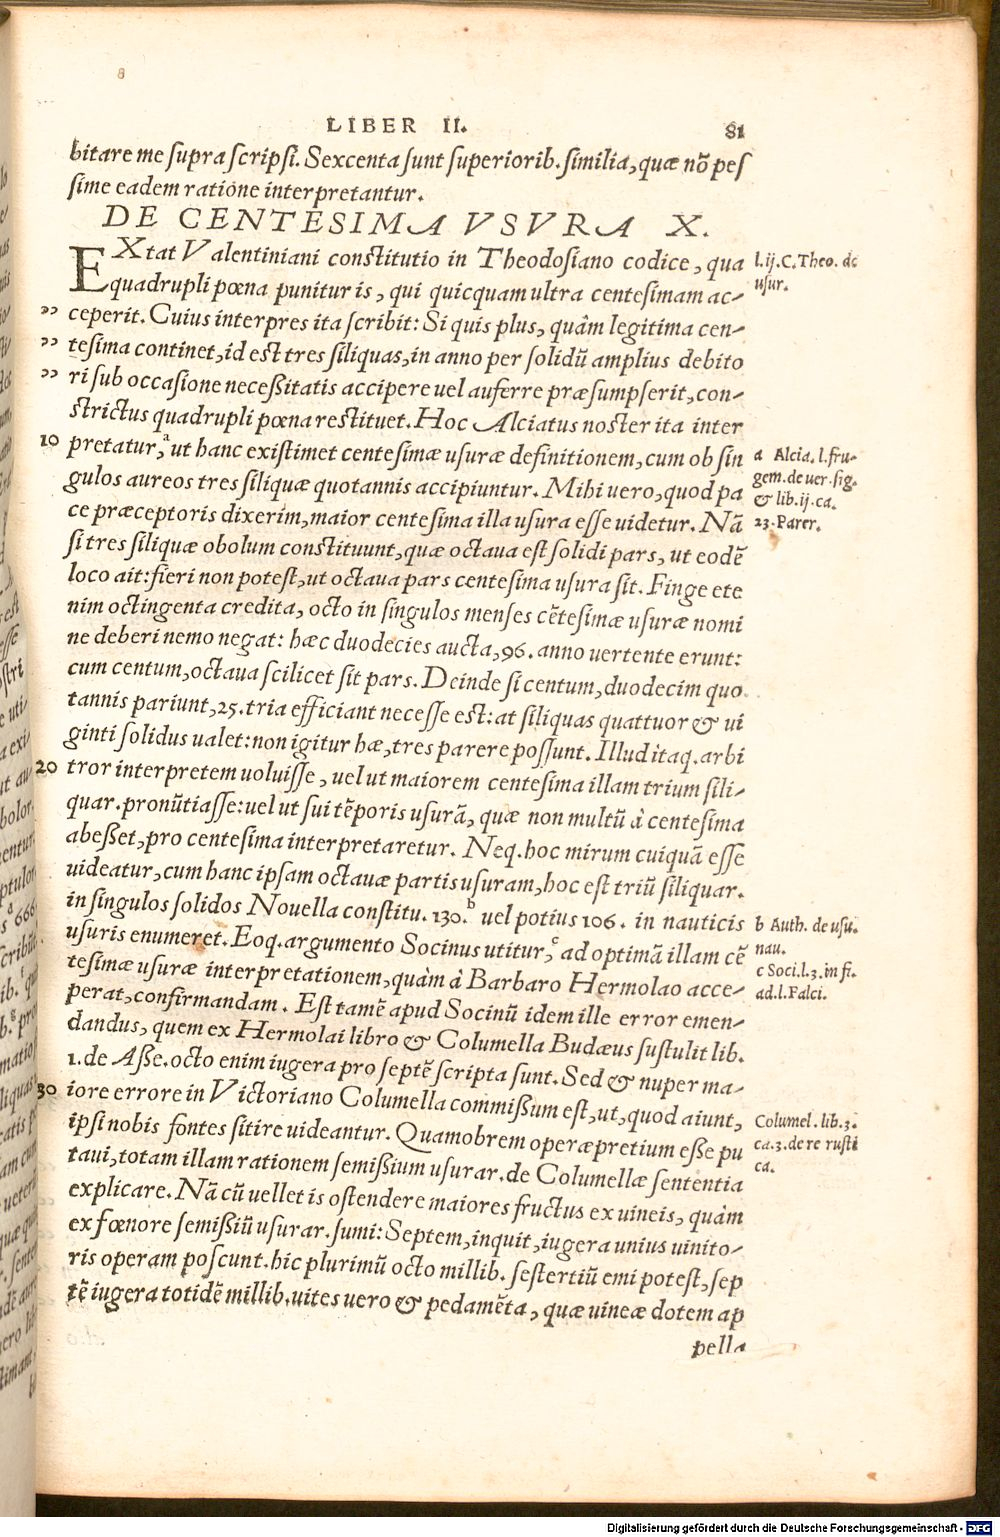 LIBER II. 81
bitare me supra scripsi. Sexcenta sunt superiorib. similia, quæ nõ pes
sime eadem ratione interpretantur.
DE CENTESIMA VSVRA X.
EXtat Valentiniani constitutio in Theodosiano codice, qua
quadrupli pœna punitur is, qui quicquam ultra centesimam ac-
ceperit. Cuius interpres ita scribit: Si quis plus, quàm legitima cen-
tesima continet, id est tres siliquas, in anno per solidũ amplius debito
ri sub occasione necessitatis accipere uel auferre præsumpserit, con-
strictus quadrupli pœna restituet. Hoc Alciatus noster ita inter
10 pretatur, a ut hanc existimet centesimæ usuræ definitionem, cum ob sin
gulos aureos tres siliquæ quotannis accipiuntur. Mihi uero, quod pa
ce præceptoris dixerim, maior centesima illa usura esse uidetur. Nã
si tres siliquæ obolum constituunt, quæ octaua est solidi pars, ut eodẽ
loco ait: fieri non potest, ut octaua pars centesima usura sit. Finge ete
nim octingenta credita, octo in singulos menses cẽtesimæ usuræ nomi
ne deberi nemo negat: hæc duodecies aucta, 96. anno uertente erunt:
cum centum, octaua scilicet sit pars. Deinde si centum, duodecim quo
tannis pariunt, 25. tria efficiant necesse est: at siliquas quattuor & ui
ginti solidus ualet: non igitur hæ, tres parere possunt. Illud itaq. arbi
20 tror interpretem uoluisse, uel ut maiorem centesima illam trium sili-
quar. pronũtiasse: uel ut sui tẽporis usurã, quæ non multũ à centesima
abesset, pro centesima interpretaretur. Neq. hoc mirum cuiquã esse
uideatur, cum hanc ipsam octauæ partis usuram, hoc est triũ siliquar.
in singulos solidos Nouella constitu. 130. b uel potius 106. in nauticis
usuris enumeret. Eoq. argumento Socinus utitur, c ad optimã illam cẽ
tesimæ usuræ interpretationem, quàm à Barbaro Hermolao acce-
perat, confirmandam. Est tamẽ apud Socinũ idem ille error emen-
dandus, quem ex Hermolai libro & Columella Budæus sustulit lib.
1. de Asse. octo enim iugera pro septẽ scripta sunt. Sed & nuper ma-
30 iore errore in Victoriano Columella commissum est, ut, quod aiunt,
ipsi nobis fontes sitire uideantur. Quamobrem operæpretium esse pu
taui, totam illam rationem semissium usurar. de Columellæ sententia
explicare. Nã cũ uellet is ostendere maiores fructus ex uineis, quàm
ex fœnore semissiũ usurar. sumi: Septem, inquit, iugera unius uinito-
ris operam poscunt. hic plurimũ octo millib. sestertiũ emi potest, sep
tẽ iugera totidẽ millib. uites uero & pedamẽta, quæ uineæ dotem ap
pella
l.ij.C.Theo. de
usur.
a Alcia. l.fru-
gem. de uer. sig.
& lib.ij.ca.
23. Parer.
b Auth. de usu.
nau.
c Soci.l.3.in fi.
ad.l.Falci.
Columel. lib.3.
ca.3.de re rusti
ca.
Digitalisierung gefördert durch die Deutsche Forschungsgemeinschaft - DFG